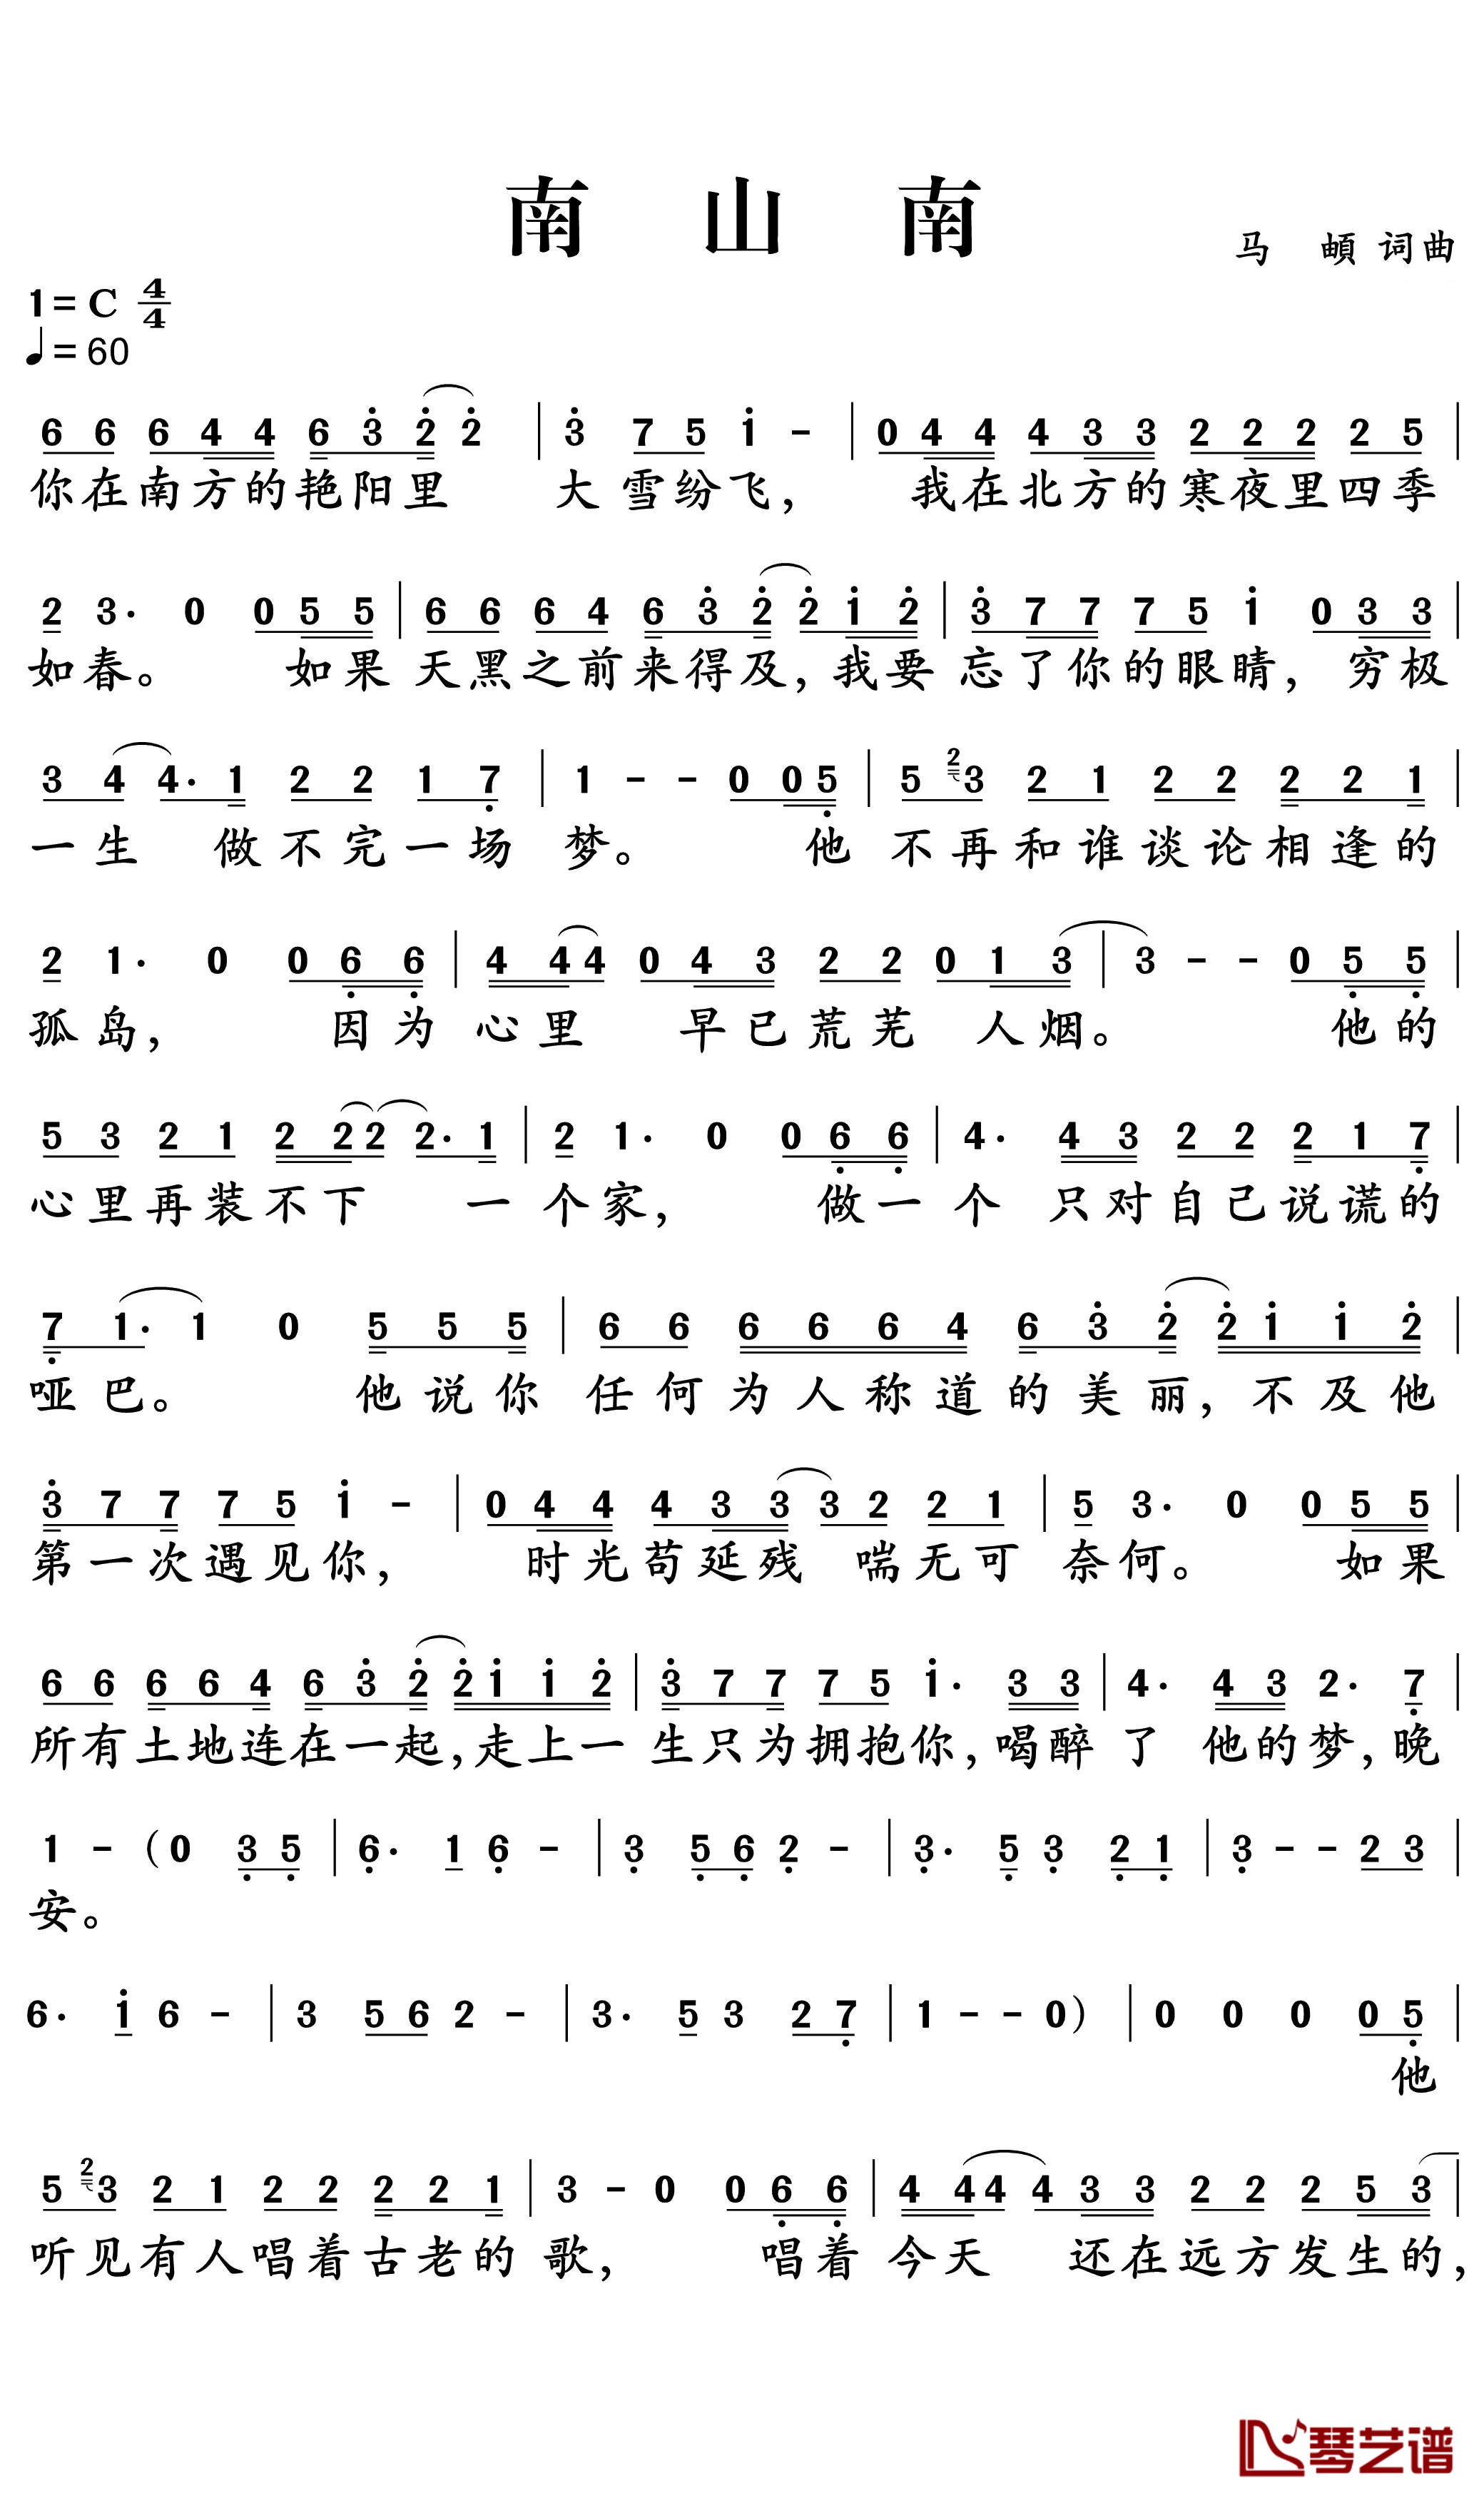 南 山 南
马 頔 词曲
1=C 4/4
♩=60
6 6 6 4 4 6 3̇ 2̇ 2̇ | 3̇ 7 5 1̇ - | 0 4 4 4 3 3 2 2 2 2 5 |
你在南方的艳阳里 大雪纷飞, 我在北方的寒夜里四季
2 3· 0 0 5 5 | 6 6 6 4 6 3̇ 2̇ 2̇ 1̇ 2̇ | 3̇ 7 7 7 5 1̇ 0 3 3 |
如春。 如果天黑之前来得及,我要忘了你的眼睛, 穷极
3 4 4· 1 2 2 1 7̣ | 1 - - 0 0 5̣ | 5 2 3 2 1 2 2 2 2 1 |
一生 做不完一场 梦。 他 不再和谁谈论相逢的
2 1· 0 0 6̣ 6̣ | 4 4 4 0 4 3 2 2 0 1 3 | 3 - - 0 5̣ 5̣ |
孤岛, 因为心里 早已荒芜 人烟。 他的
5 3 2 1 2 2 2 2· 1 | 2 1· 0 0 6̣ 6̣ | 4· 4 3 2 2 2 1 7̣ |
心里再装不下 一个家, 做一个 只对自己说谎的
7̣ 1· 1 0 5 5 5 | 6 6 6 6 6 4 6 3̇ 2̇ 2̇ 1̇ 1̇ 2̇ |
哑巴。 他说你 任何为人称道的美丽, 不及他
3̇ 7 7 7 5 1̇ - | 0 4 4 4 3 3 3 2 2 1 | 5 3· 0 0 5 5 |
第一次遇见你, 时光苟延残 喘无可 奈何。 如果
6 6 6 6 4 6 3̇ 2̇ 2̇ 1̇ 1̇ 2̇ | 3̇ 7 7 7 5 1̇· 3 3 | 4· 4 3 2· 7̣ |
所有土地连在一起,走上一生只为拥抱你,喝醉了 他的梦,晚
1 - (0 3̣ 5̣ | 6̣· 1 6̣ - | 3̣ 5̣ 6̣ 2̣ - | 3̣· 5̣ 3̣ 2̣ 1̣ | 3̣ - - 2 3 |
安。
6· 1̇ 6 - | 3 5 6 2 - | 3· 5 3 2 7̣ | 1 - - 0) | 0 0 0 0 5̣ |
他
5 2 3 2 1 2 2 2 2 1 | 3 - 0 0 6̣ 6̣ | 4 4 4 4 3 3 2 2 2 5 3 |
听见有人唱着古老的歌, 唱着今天 还在远方发生的,
琴艺谱